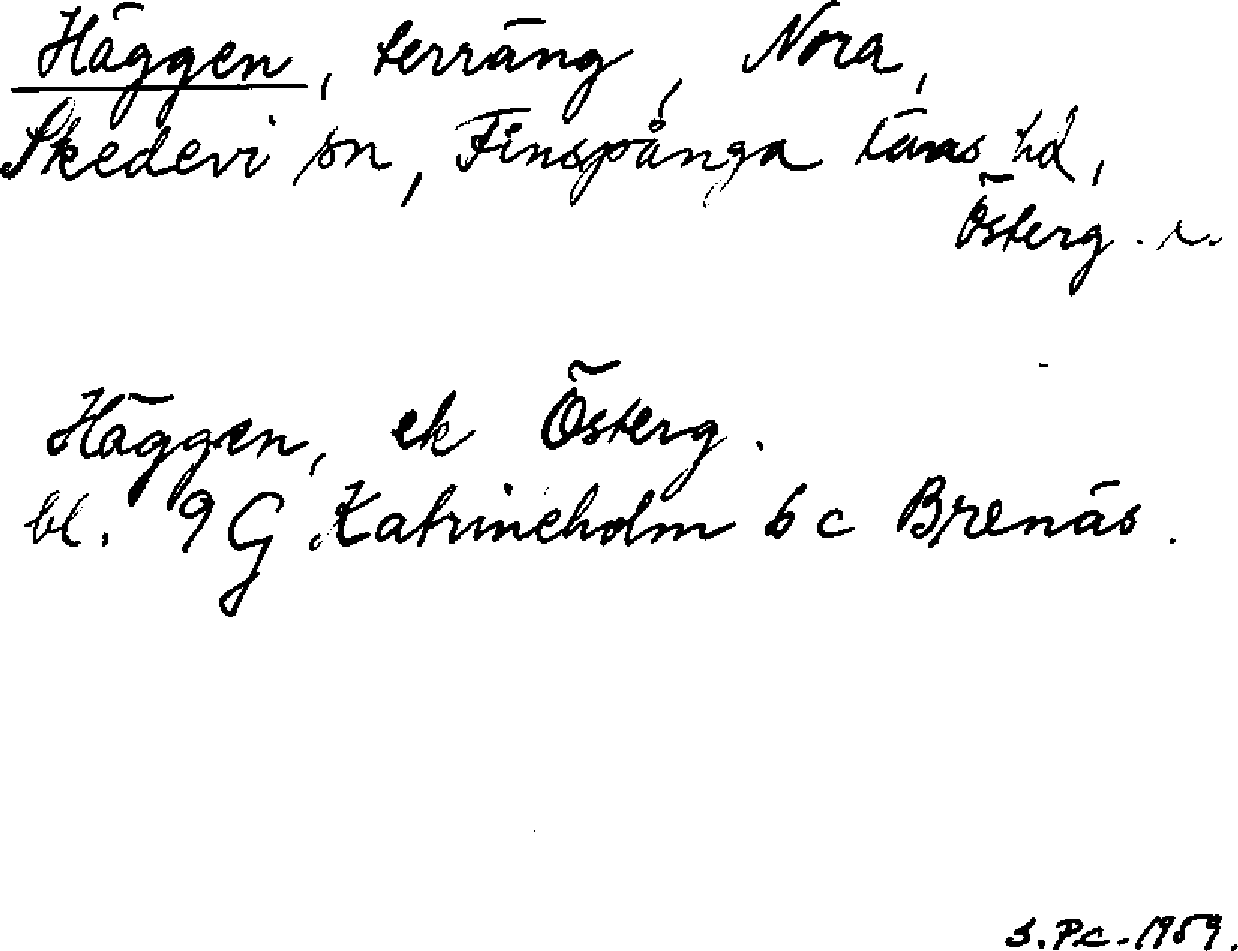 Häggen, terräng, Nora,
Skedevi sn, Finspånga läns hd,
Österg. l.
Häggen, ek Österg.
bl. 9 G Katrineholm 6 c Brenäs.
S.Pc.1959.